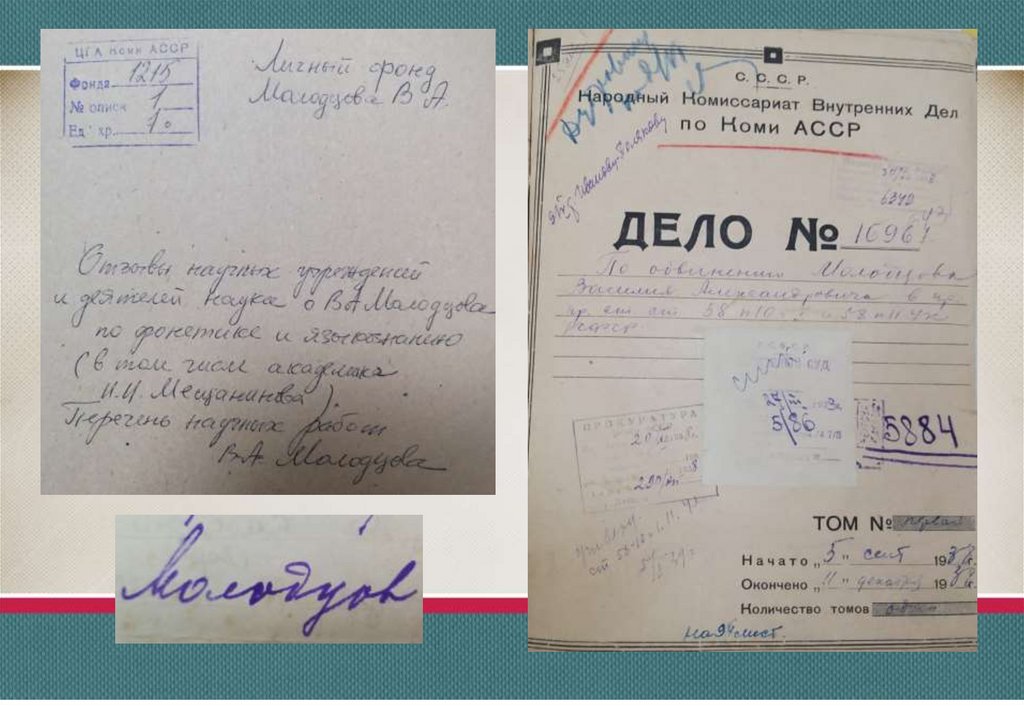 ЦГА Коми АССР
Фонда 1215
№ описи 1
Ед. хр. 10
Личный фонд
Молодцова В.А.
Отзывы научных учреждений
и деятелей наука о В.А Молодцова
по фонетике и языкознанию
(в том числе академика
И.И. Мещанинова)
Перечень научных работ
В.А. Молодцова
Молодцов
С. С. С. Р.
Народный Комиссариат Внутренних Дел
по Коми АССР
6342
ДЕЛО №
По обвинению Молодцова
Василия Александровича в пр.
пр. ст ст 58 п 10 и 58 п 11 УК
РСФСР
суд
5/86
ПРОКУРАТУРА
5884
ТОМ № первый
Начато „5" сент 193
Окончено „11" декабря 193
Количество томов один
на 94 лист.